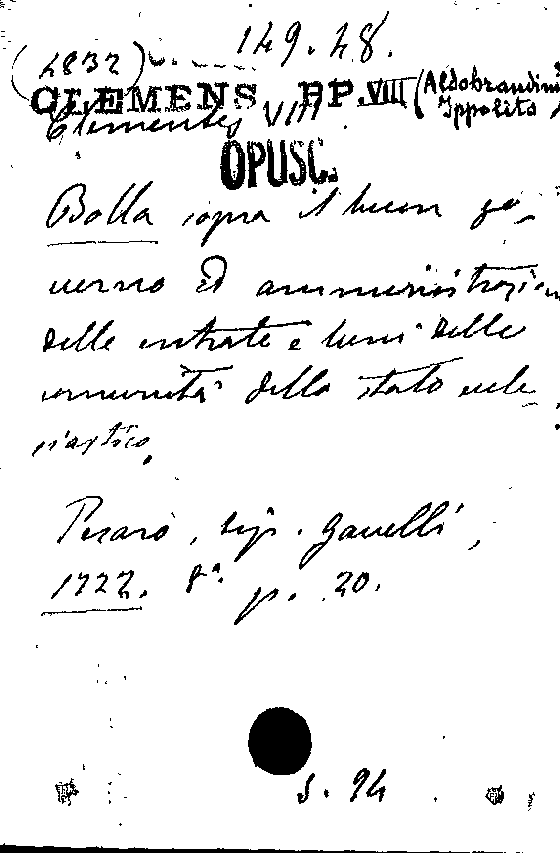 149.48.
(4832)
CLEMENS PP.VIII (Aldobrandini Ippolito)
Clementes VIII
OPUSC.
Bolla sopra il buon go-
verno ed amministrazion
delle entrate e beni delle
comunità dello stato eccle-
siastico.
Pesaro, tip. Gavelli,
1722. 8°. p. 20.
S. 94